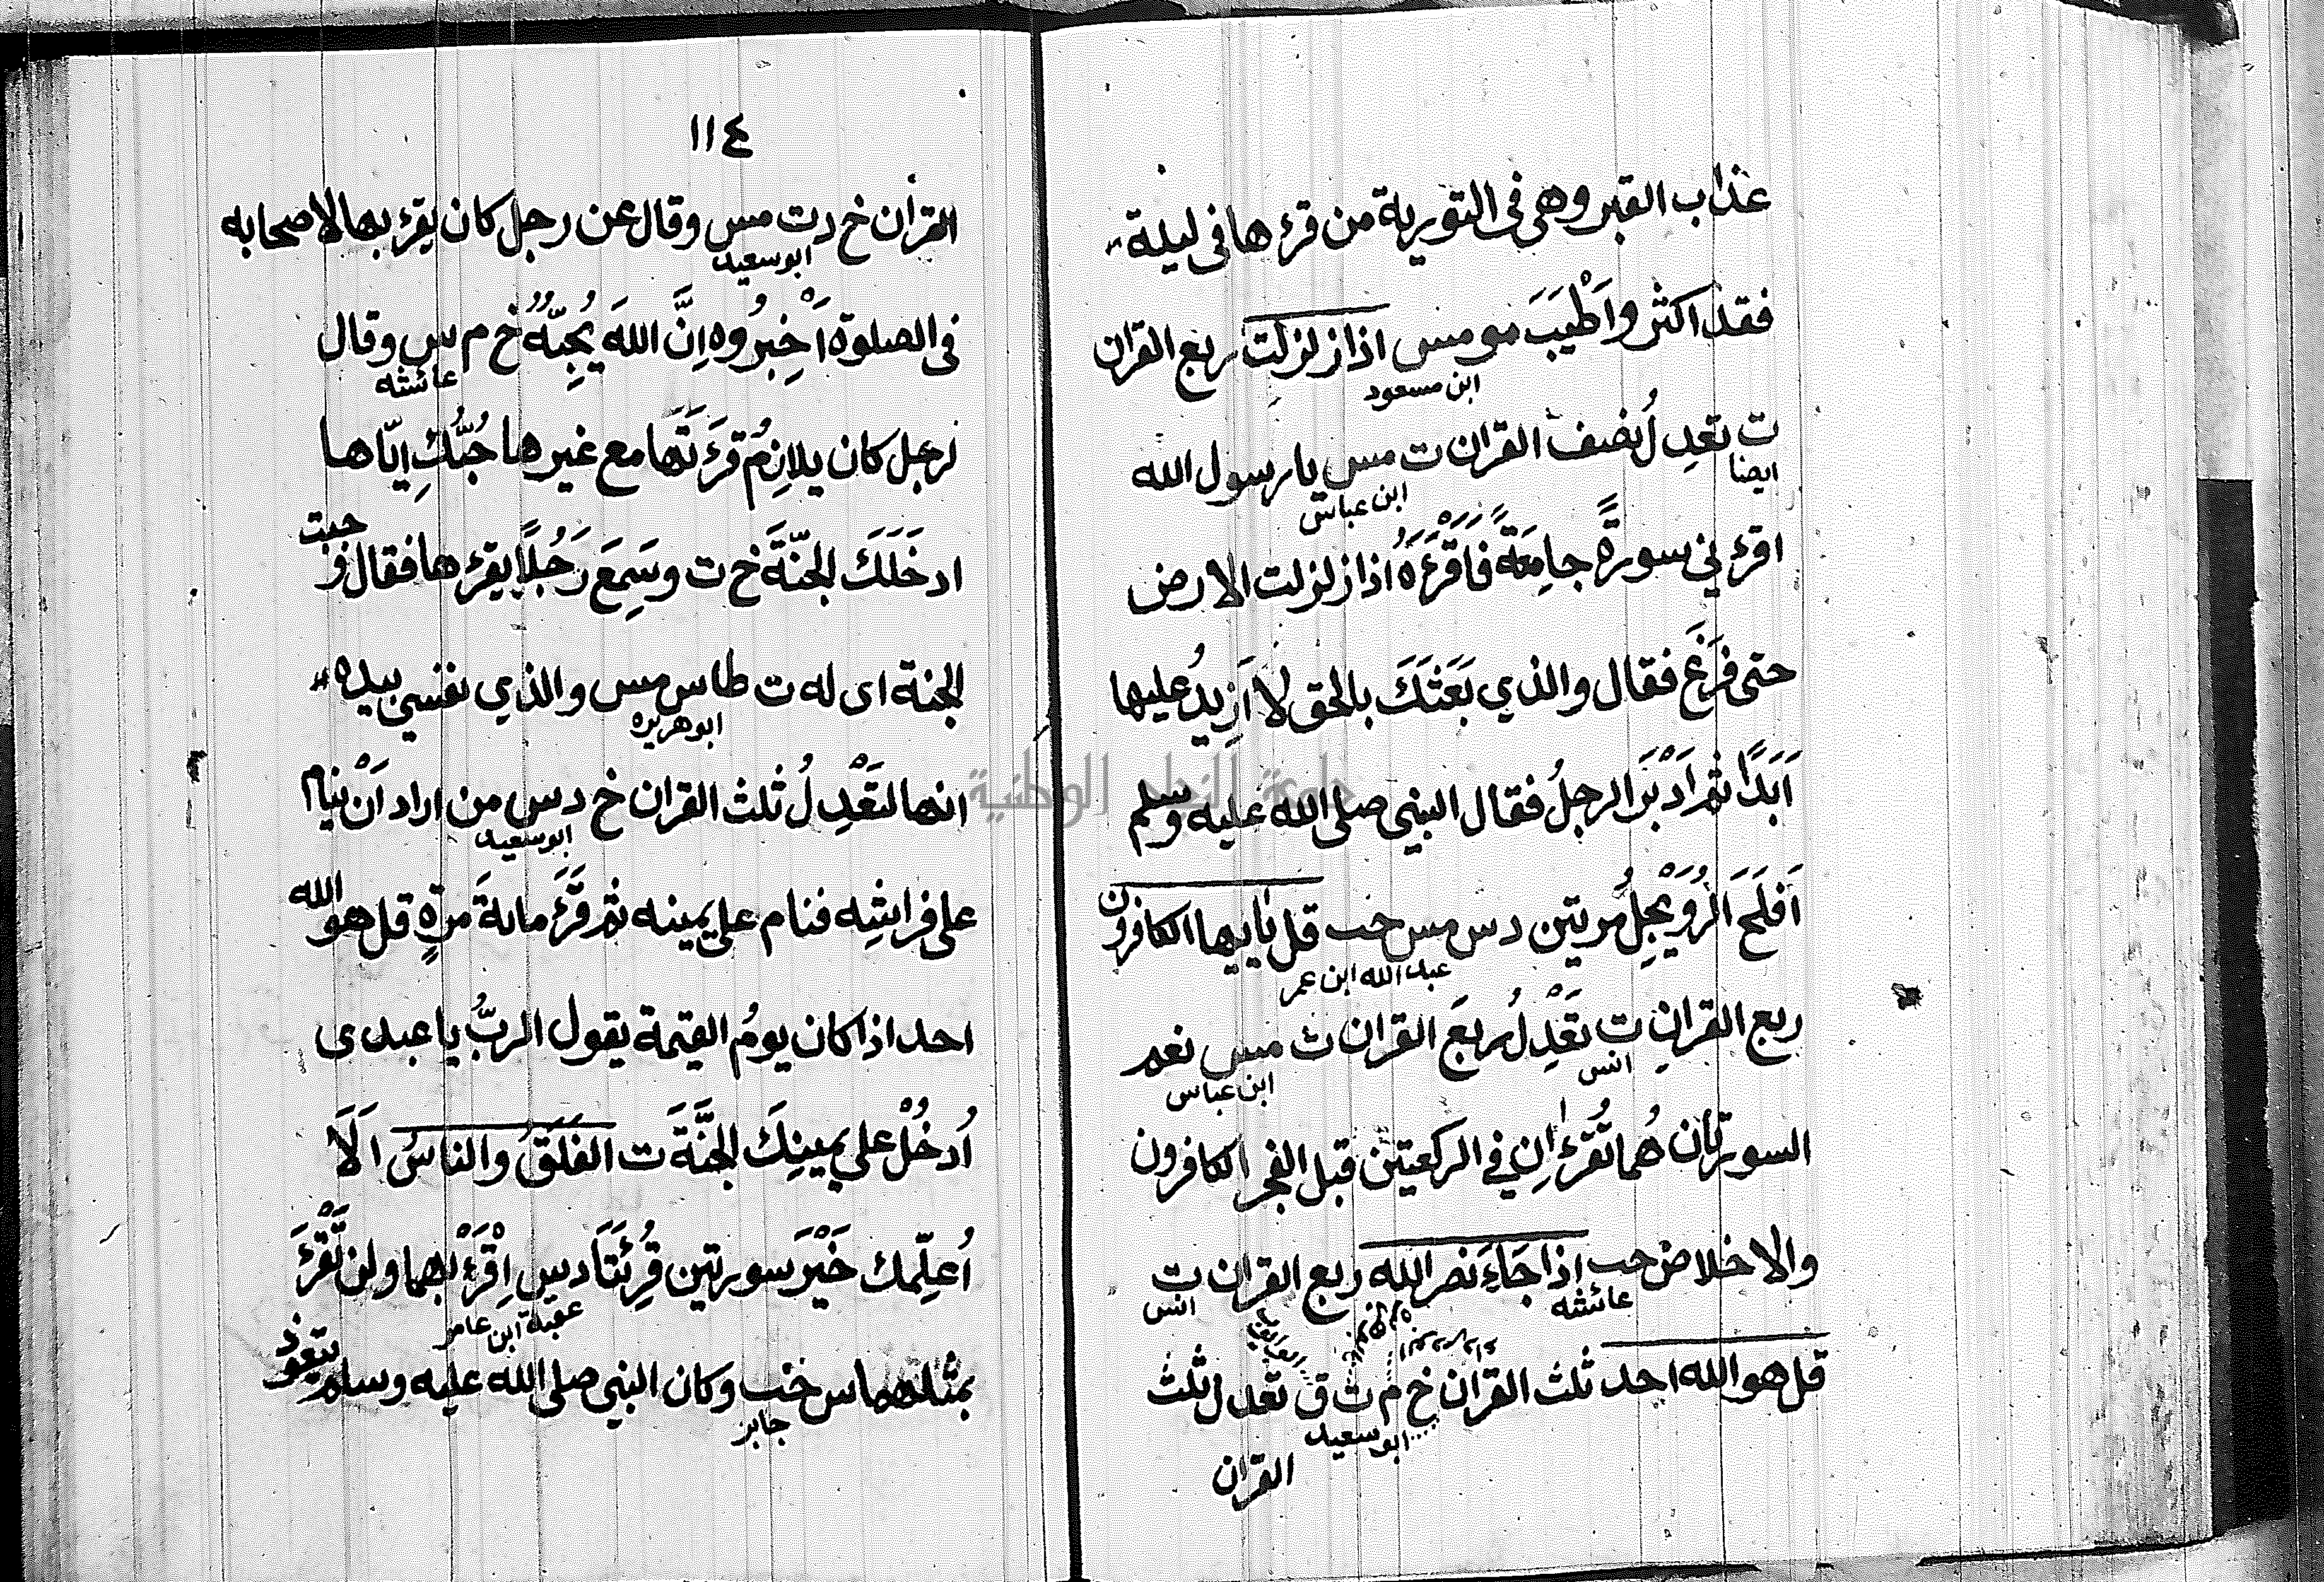 عذاب القبر وهى فى التورية من قرء ها فى ليلة
فقد اكثر واَطْيَبَ مو مس اذا زلزلت ربع القران
ابن مسعود
ت تعدِلُ نصف القران ت مس يا رسول الله
ايضا
ابن عباس
اقرء ني سورةً جامِعَةً فَاَقْرَءَهُ اذا زلزلت الارض
حتى فَرَغَ فقال والذي بَعَثَكَ بالحق لا اَزِيدُ عليها
اَبَدًا ثم اَدْبَرَ الرجلُ فقال النبي صلى الله عليه وسلم
اَفلَحَ الرُوَيْجِلُ مرتين د س مس حب قل يا ايها الكافرون
عبد الله ابن عمر
ربع القران ت تَعْدِلُ ربعَ القران ت مس نعم
انس
ابن عباس
السورتان هُما تُقرءانِ في الركعتين قبل الفجر الكافرون
والاخلاص حب اذا جَاءَ نصر الله ربع القران ت
عائشه
انس
قل هو الله احد ثلث القرآن خ م ت ق تعدل ثلث
ابو سعيد
القران
١١٤
القرأن خ د ت مس وقال عن رجل كان يقرء بها لاصحابه
ابو سعيد
فى الصلوة اَخْبِرُوه اِنَّ اللهَ يُحِبُّهُ خ م س وقال
عائشه
لرجل كان يلازِمُ قرَءَتَها مع غيرها حُبُّكِ ايّاها
ادخَلَكَ الجنّةَ خ ت وسَمِعَ رَجُلًا يقرءها فقال وجبت
الجنة اى له ت طا س مس والذي نفسي بيده
ابو هريره
انها لتَعْدِلُ ثلث القران خ د س من اراد اَنْ ينام
ابو سعيد
على فراشِه فنام على يمينه ثم قَرَءَ مائة مرةٍ قل هو الله
احد اذا كان يومُ القيمة يقول الربُّ يا عبدى
اُدخُلْ على يمينِكَ الجنَّةَ ت الفَلَقُ والناسُ اَلَا
اُعلِّمك خَيْرَ سورتين قُرِئَتَا د س اِقْرَءْ بهما ولن تَقْرَءَ
عقبة ابن عامر
بمثلهما س حب وكان النبي صلى الله عليه وسلم يتعوذ
جابر
جامعة النجاح الوطنية